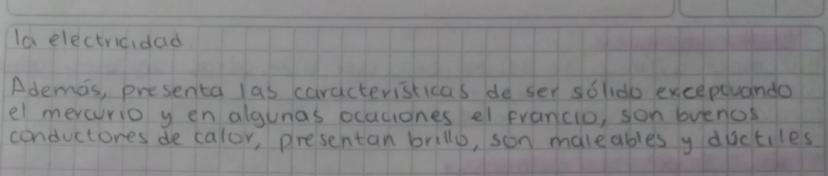 la electricidad
Además, presenta las características de ser sólido exceptuando
el mercurio y en algunas ocaciones el francio, son buenos
conductores de calor, presentan brillo, son maleables y dúctiles